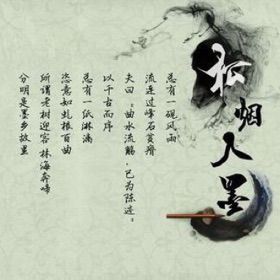 松烟入墨
总有一砚风雨
流连过峰石苔滑
夫曰：曲水流觞，已为陈迹：
以千古而序
总有一纸淋漓
恣意如虬根百曲
所谓老树迎客 林海奔啼
分明是墨乡故里